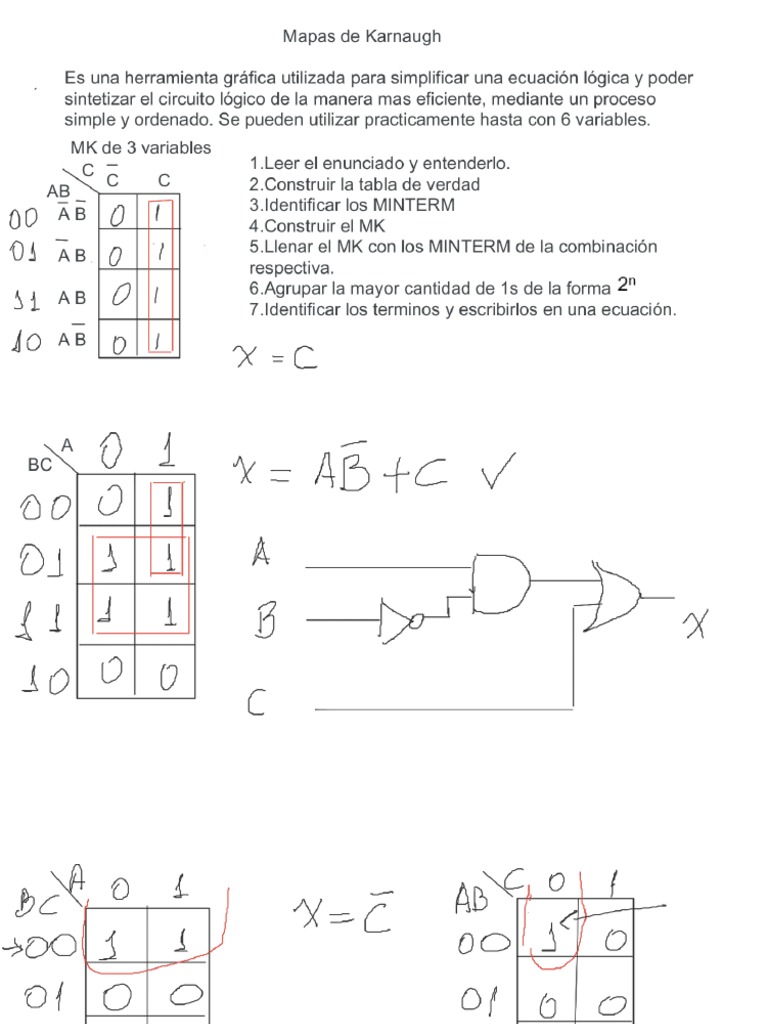 Mapas de Karnaugh
Es una herramienta gráfica utilizada para simplificar una ecuación lógica y poder
sintetizar el circuito lógico de la manera mas eficiente, mediante un proceso
simple y ordenado. Se pueden utilizar practicamente hasta con 6 variables.
MK de 3 variables
C C̅ C
AB
00 A̅ B̅ 0 1
01 A̅ B 0 1
11 A B 0 1
10 A B̅ 0 1
1.Leer el enunciado y entenderlo.
2.Construir la tabla de verdad
3.Identificar los MINTERM
4.Construir el MK
5.Llenar el MK con los MINTERM de la combinación
respectiva.
6.Agrupar la mayor cantidad de 1s de la forma 2ⁿ
7.Identificar los terminos y escribirlos en una ecuación.
X = C
A 0 1
BC
00 0 1
01 1 1
11 1 1
10 0 0
X = AB̅ + C ✓
A
B
C
X
A 0 1
BC
→00 1 1
01 0 0
X = C̅
C 0 1
AB
00 1 0
01 0 0